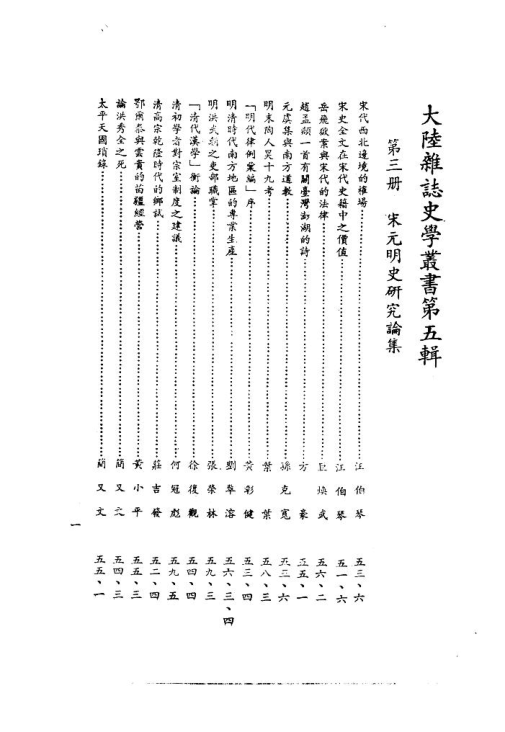 大陸雜誌史學叢書第五輯
第三册 宋元明史研究論集
宋代西北邊境的榷場 汪伯琴 五三、六
宋史全文在宋代史籍中之價值 汪伯琴 五一、六
岳飛獄案與宋代的法律 煥武 五六、二
趙孟頫一首有關臺灣澎湖的詩 方豪 五五、一
元虞集與南方道教 孫克寬 五三、六
明末陶人昊十九考 葉葉 五八、三
「明代律例彙編」序 黃彰健 五三、四
明清時代南方地區的專業生產 劉翠溶 五六、三、四
明洪武朝之吏部職掌 張榮林 五九、三
「清代漢學」衡論 徐復觀 五四、四
清初學者對宗室制度之建議 何冠彪 五九、五
清高宗乾隆時代的鄉試 莊吉發 五二、四
鄂爾泰與雲貴的苗疆經營 黃小平 五五、三
論洪秀全之死 簡又文 五四、三
太平天國瑣錄 簡又文 五五、一
一